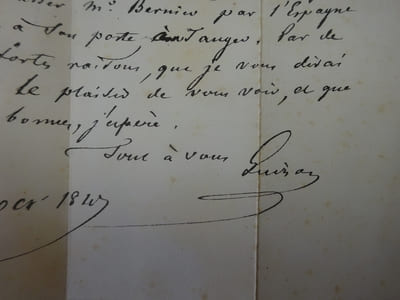 mr Bernier par l'Espagne
à son poste à Tanger. Par de
fortes raisons, que je vous dirai
le plaisir de vous voir, et que
bonnes, j'espère.
Tout à vous Guizot